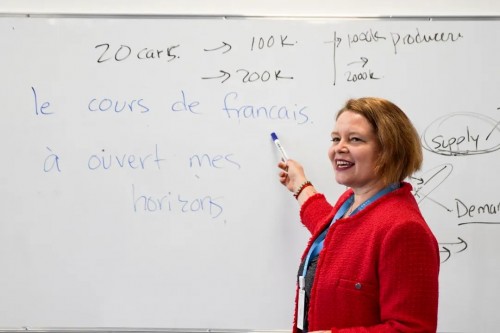 20 cars. → 100k
→ 200k
→ 1000k producere
→ 2000k
le cours de francais.
à ouvert mes
horizons
supply